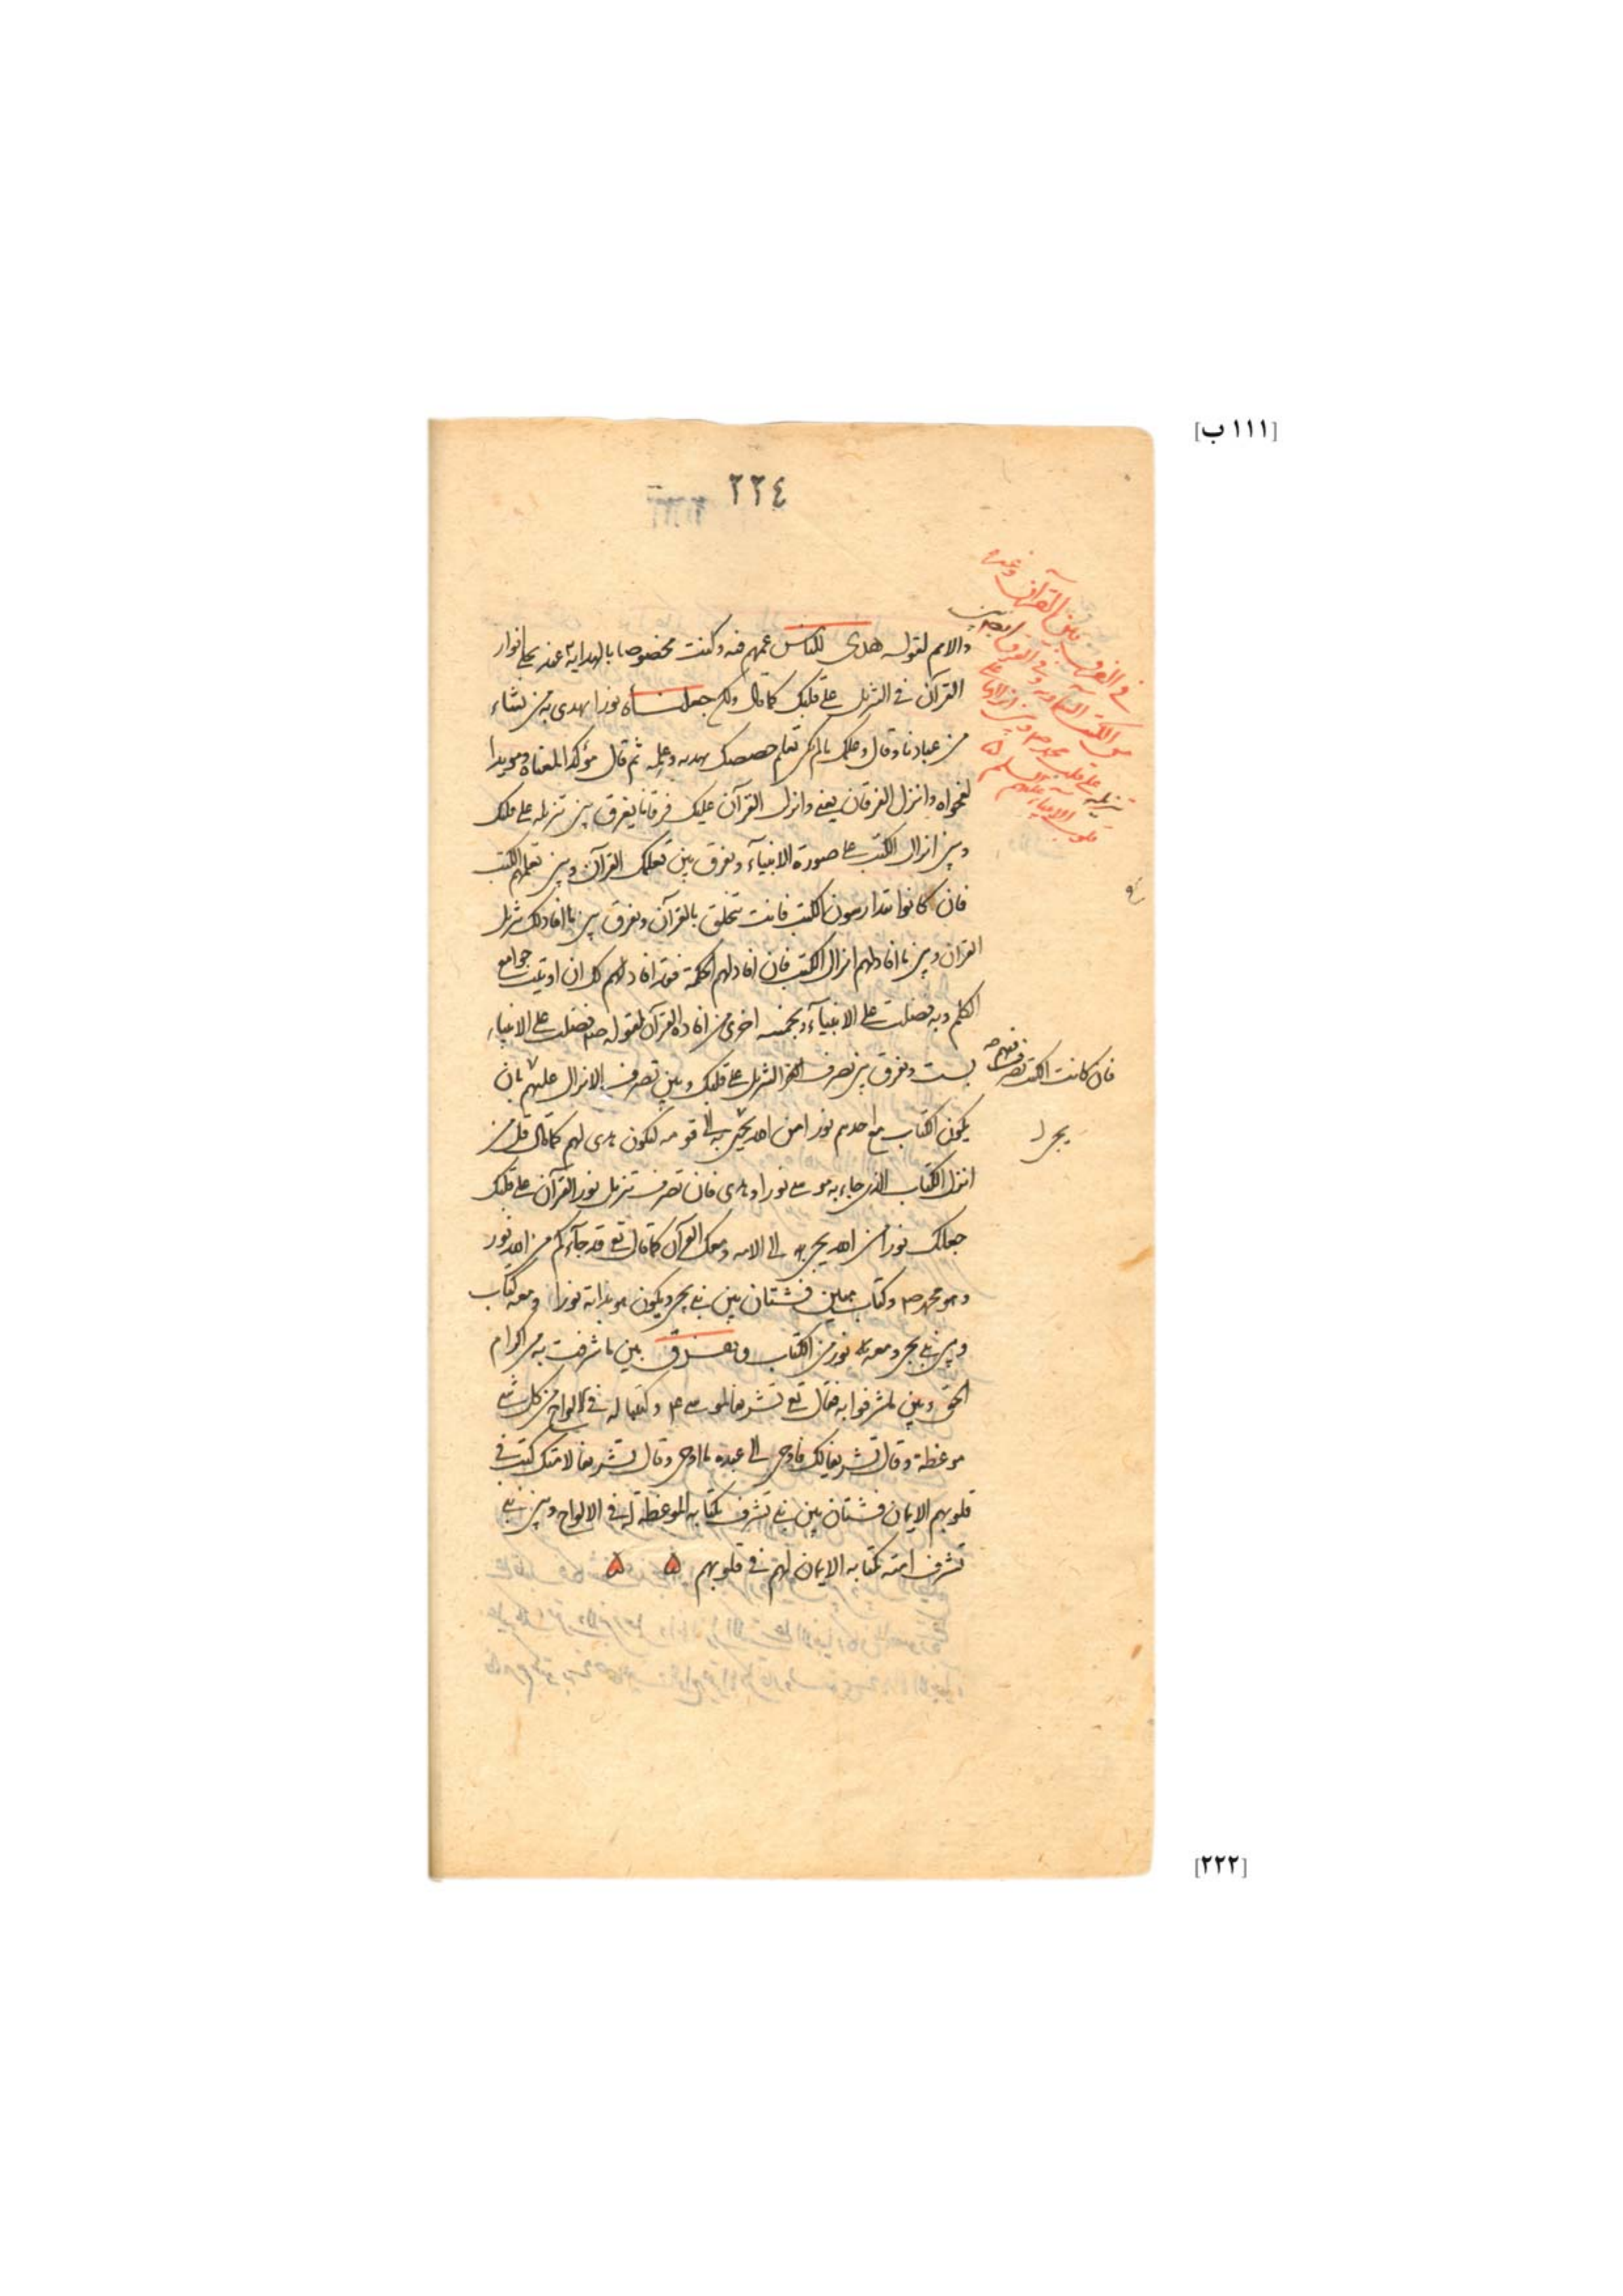 [١١١ ب]
٢٢٤
في الفرق بين القرآن وغيره
من الكتب السماوية وفي الفرق ايضا بين
تنزيله على قلب محمد ص وبين انزالها على
قلوب الانبياء عليهم السلم
والامم لقوله هدى للناس عمهم فيه وكنت مخصوصا بالهداية عند تجلي انوار
القرآن في التنزيل على قلبك كما قال ولكن جعلناه نورا نهدى به من نشاء
من عبادنا وقال وعلمك مالم تكن تعلم خصصك بهديه وعلمه ثم قال مؤكدا لمعناه ومويدا
لفحواه وانزل الفرقان يعنى وانزل القرآن عليك فرقانا يفرق بين تنزيله على قلبك
وبين انزال الكتب على صورة الانبيآء ويفرق بين تعلمك القرآن وبين تعلمهم الكتب
فان كانوا يتدارسون الكتب فانت تتخلق بالقرآن ويفرق بين ما افاد لك تنزيل
القرآن وبين ما افاد لهم انزال الكتب فان افاد لهم الحكمة فقد افاد لك ان اوتيت جوامع
الكلم وبه فضلت على الانبيآء وبخمسه اخرى من افادة القرآن لقوله ص فضلت على الانبياء
بست ويفرق بين تصرف التنزيل على قلبك وبين تصرف الانزال عليهم بان
فان كانت الكتب تصرفت فيهم
يكون الكتاب مع احدهم نورا من الله يجئ به الى قومه ليكون هدى لهم كما قال قل من
انزل الكتاب الذى جاء به موسى نورا وهدى فان تصرف تنزيل نور القرآن على قلبك
جعلك نورا من الله يجئ الى الامه ومعك القرآن كما قال تع قد جآءكم من الله نور
وهو محمد ص وكتاب مبين فشتان بين نبي يجئ ويكون هو بذاته نورا ومعه كتاب
وبين نبي يجئ ومعه نور من الكتاب ويفرق بين ما شرفت به من اكرام
الحق وبين ما شرفوا به فقال تع تشريفا لموسى ع وكتبنا له في الالواح من كل شئ
موعظة وقال تشريفا لك فاوحى الى عبده ما اوحى وقال تشريفا لامتك كتب في
قلوبهم الايمان فشتان بين نبي تشرف بكتابه الموعظة له في الالواح وبين نبي
تشرف امته بكتابه الايمان لهم في قلوبهم ۵ ۵
[٢٢٢]